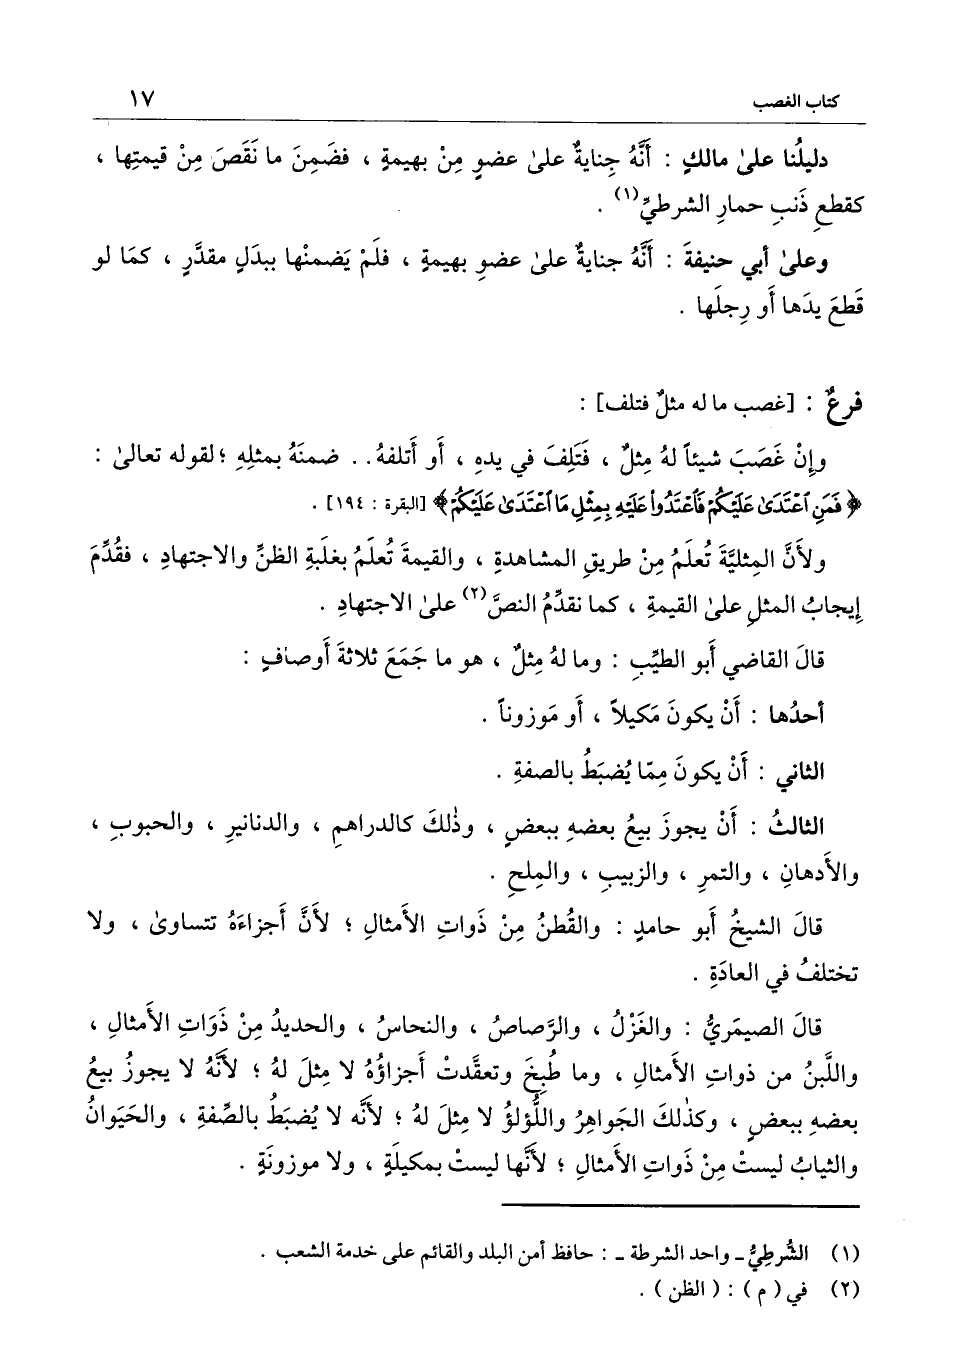 كتاب الغصب ١٧
دليلُنا علىٰ مالكٍ : أَنَّهُ جِنايةٌ علىٰ عضوٍ مِنْ بهيمةٍ ، فضَمِنَ ما نَقَصَ مِنْ قيمتِها ،
كقطعِ ذَنبِ حمارِ الشرطيِّ(١) .
وعلىٰ أبي حنيفةَ : أَنَّهُ جنايةٌ علىٰ عضوِ بهيمةٍ ، فلَمْ يَضمنْها ببدَلٍ مقدَّرٍ ، كمَا لو
قَطعَ يدَها أو رِجلَها .
فرعٌ : [غصب ما له مثلٌ فتلف] :
وإنْ غَصَبَ شيئاً لهُ مِثلٌ ، فتَلِفَ في يدِهِ ، أَو أَتلفهُ . . ضمنَهُ بمثلِهِ ؛ لقوله تعالىٰ :
﴿ فَمَنِ ٱعْتَدَىٰ عَلَيْكُمْ فَٱعْتَدُوا۟ عَلَيْهِ بِمِثْلِ مَا ٱعْتَدَىٰ عَلَيْكُمْ﴾ [البقرة : ١٩٤] .
ولأَنَّ المِثليَّةَ تُعلَمُ مِنْ طريقِ المشاهدةِ ، والقيمةَ تُعلَمُ بغلَبةِ الظنِّ والاجتهادِ ، فقُدِّمَ
إيجابُ المثلِ علىٰ القيمةِ ، كما نقدِّمُ النصَّ(٢) علىٰ الاجتهادِ .
قالَ القاضي أَبو الطيِّبِ : وما لهُ مِثلٌ ، هو ما جَمَعَ ثلاثةَ أَوصافٍ :
أحدُها : أَنْ يكونَ مَكيلاً ، أَو مَوزوناً .
الثاني : أَنْ يكونَ مِمّا يُضبَطُ بالصفةِ .
الثالثُ : أَنْ يجوزَ بيعُ بعضهِ ببعضٍ ، وذٰلكَ كالدراهمِ ، والدنانيرِ ، والحبوبِ ،
والأَدهانِ ، والتمرِ ، والزبيبِ ، والمِلحِ .
قالَ الشيخُ أَبو حامدٍ : والقُطنُ مِنْ ذَواتِ الأَمثالِ ؛ لأَنَّ أَجزاءَهُ تتساوىٰ ، ولا
تختلفُ في العادَةِ .
قالَ الصيمَريُّ : والغَزْلُ ، والرَّصاصُ ، والنحاسُ ، والحديدُ مِنْ ذَوَاتِ الأَمثالِ ،
واللَّبنُ من ذواتِ الأَمثالِ ، وما طُبِخَ وتعقَّدتْ أَجزاؤُهُ لا مِثلَ لهُ ؛ لأَنَّهُ لا يجوزُ بيعُ
بعضهِ ببعضٍ ، وكذٰلكَ الجَواهِرُ واللُّؤلؤُ لا مِثلَ لهُ ؛ لأنَّه لا يُضبَطُ بالصِّفةِ ، والحَيَوانُ
والثيابُ ليستْ مِنْ ذَواتِ الأَمثالِ ؛ لأَنَّها ليستْ بمكيلَةٍ ، ولا موزونَةٍ .
(١) الشُّرطِيُّ ـ واحد الشرطة ـ : حافظ أمن البلد والقائم على خدمة الشعب .
(٢) في ( م ) : ( الظن ) .